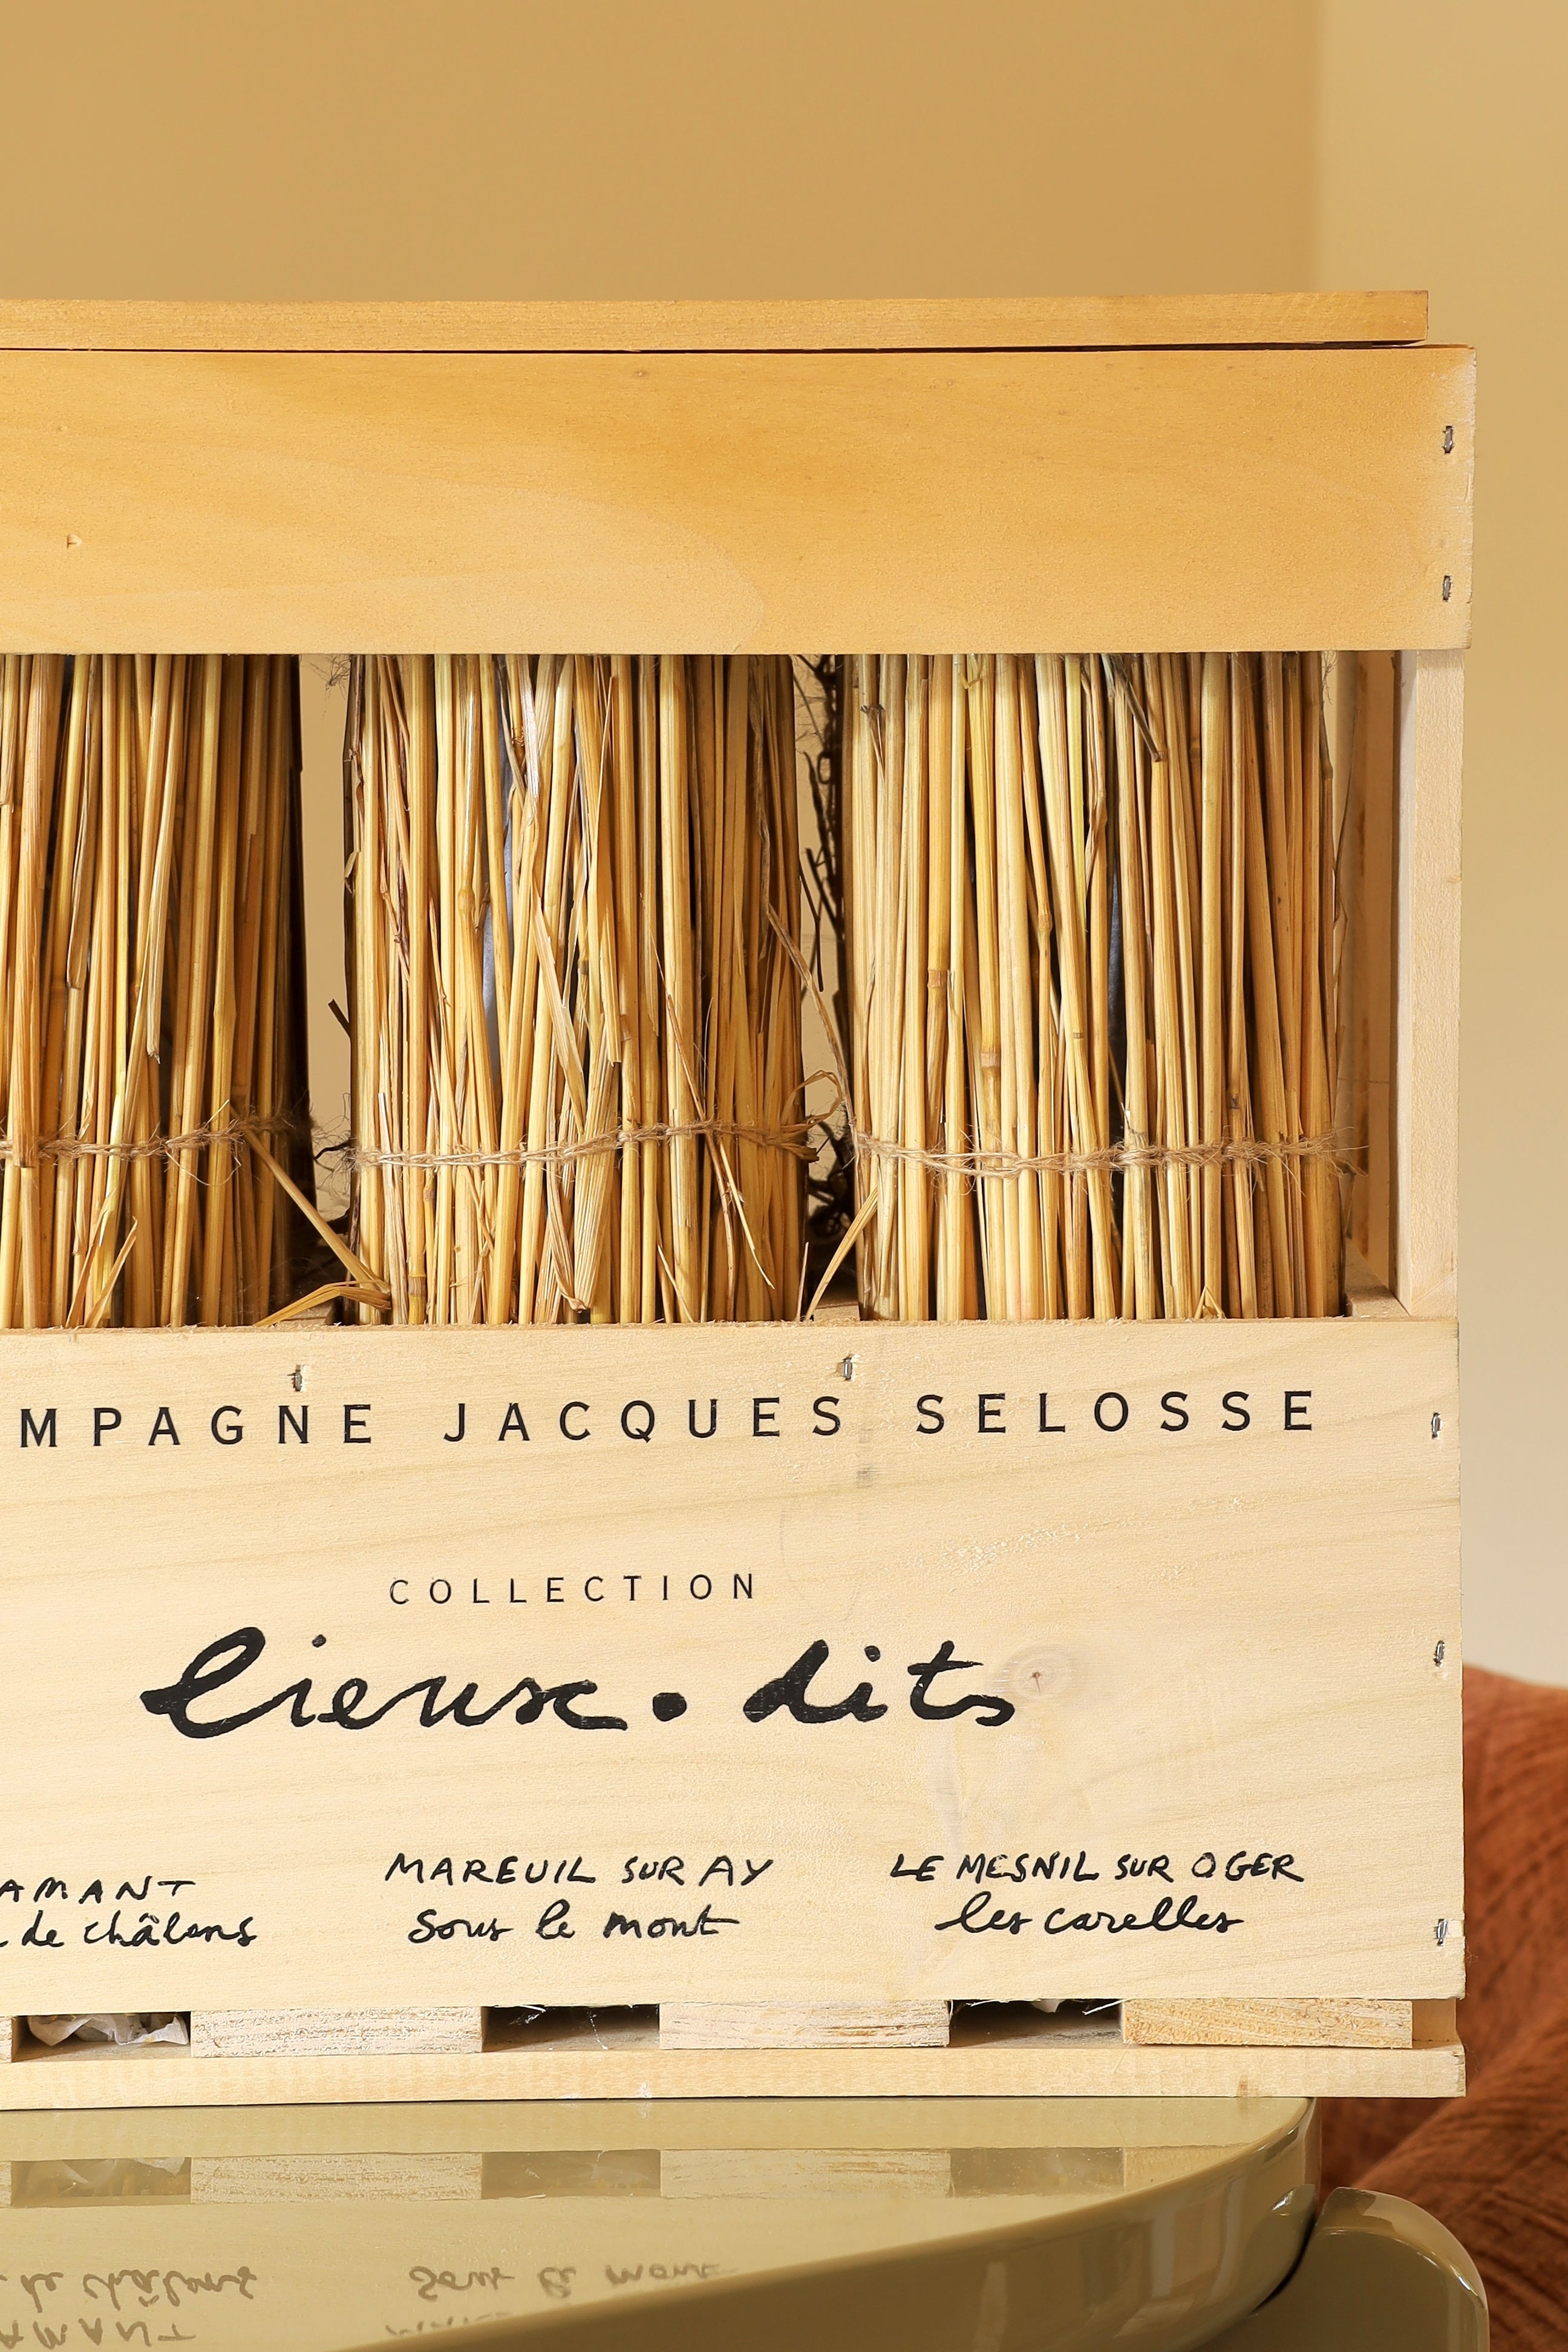 MPAGNE JACQUES SELOSSE
COLLECTION
lieux • dits
AMANT
de châlons
MAREUIL SUR AY
sous le mont
LE MESNIL SUR OGER
les carelles